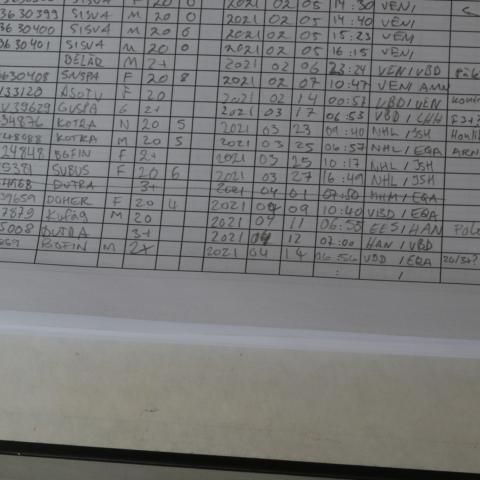 SISVA F 20 0 2021 02 05 14:30 VENI
3630399 SISVA M 20 0 2021 02 05 14:40 VENI
0630400 SISVA M 20 0 2021 02 05 15:23 VENI
30401 SISVA M 20 0 2021 02 05 16:15 VENI
DELÅR M 2+ 2021 02 06 23:24 VENI/VBD
6630408 SVSPA F 20 8 2021 02 07 10:47 VENI AMN
133120 ASOTU F 20 2021 02 14 00:53 VBD/VEN
V39629 GUSPA 6 2+ 2021 03 17 06:53 VBD/LHH
34876 KOTRA N 20 5 2021 03 23 09:40 NHL/JSH
48088 KOTRA M 20 5 2021 03 25 06:57 NHL/EQA ARN
24848 BOFIN F 2+ 2021 03 25 10:17 NHL/JSH
5381 SUBUS F 20 6 2021 03 27 16:49 NHL/JSH
DUTRA 3+ 2021 04 01 07:50 HHM/EQA
39659 DOHER F 20 4 2021 04 09 10:40 VBD/EQA
2879 KUFÅG M 20 2021 04 11 06:55 EES/HAN
5008 DUTRA 3+ 2021 04 12 07:00 HAN/VBD
669 BOFIN M 2+ 2021 04 14 06:56 VBD/EQA
: /